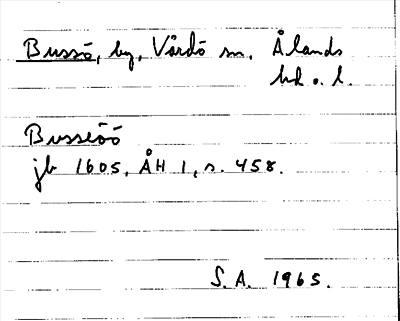 Bussö, by, Vårdö sn, Ålands
hd o. l.
Busseöö
jb 1605, ÅH 1, s. 458.
S.A. 1965.